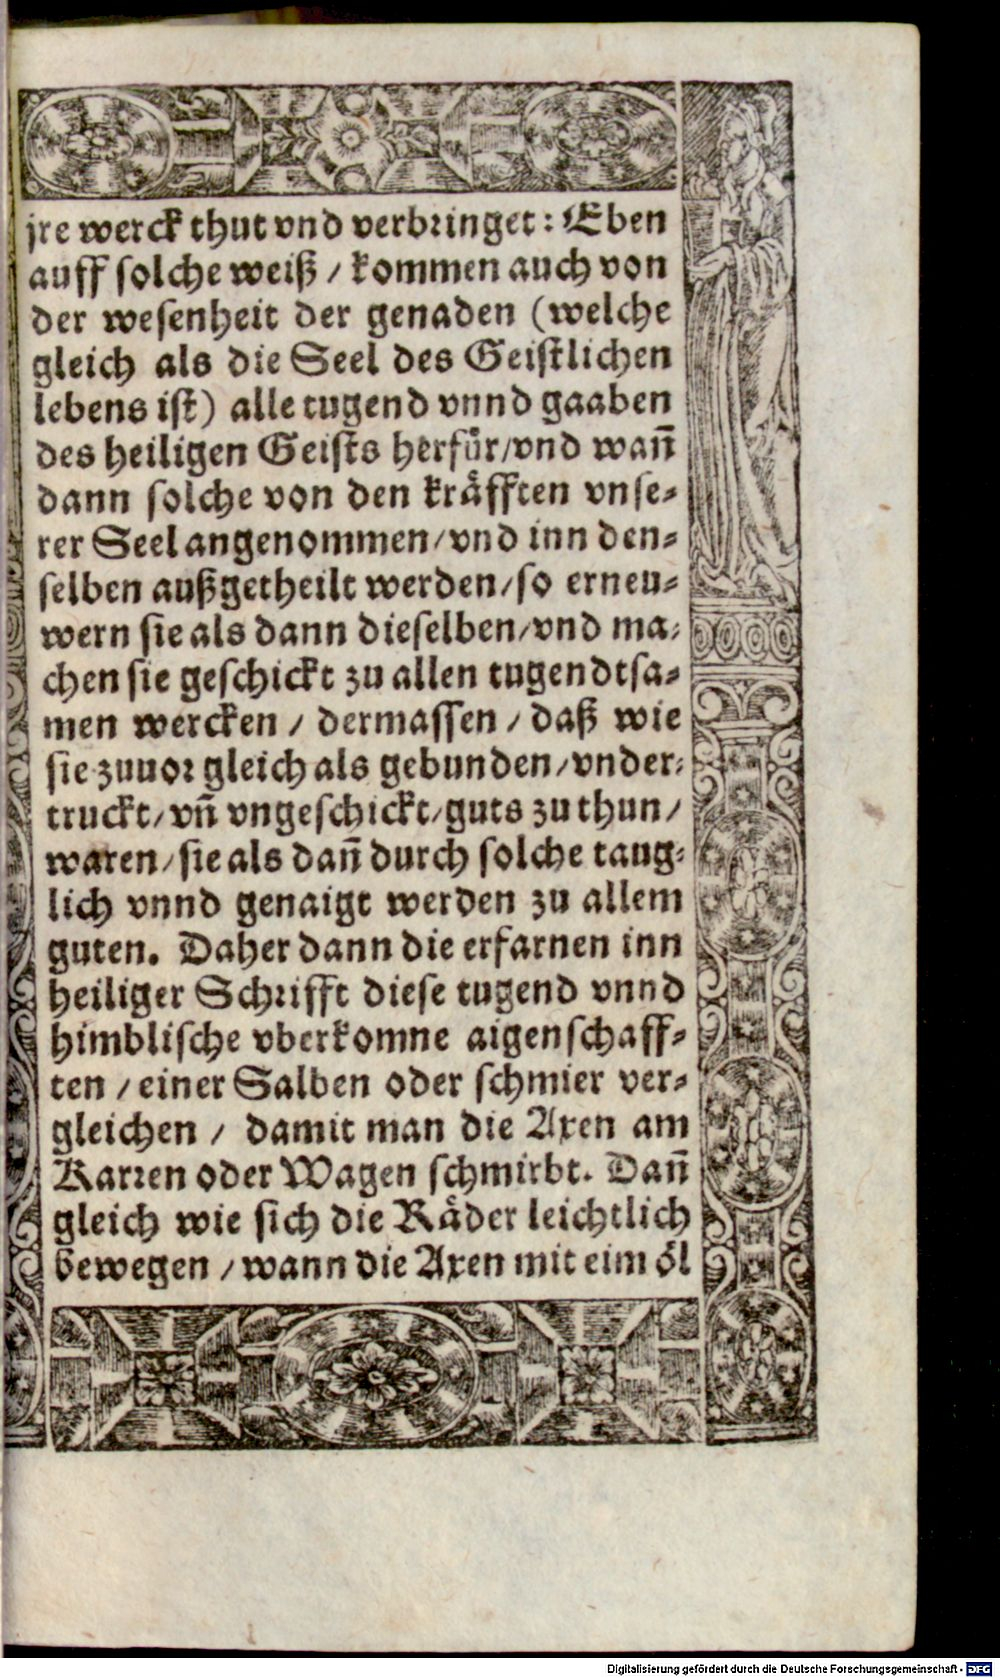 jre werck thut vnd verbringet: Eben
auff solche weiß / kommen auch von
der wesenheit der genaden (welche
gleich als die Seel des Geistlichen
lebens ist) alle tugend vnnd gaaben
des heiligen Geists herfür/vnd wañ
dann solche von den kräfften vnse-
rer Seel angenommen/vnd inn den-
selben außgetheilt werden/so erneu-
wern sie als dann dieselben/vnd ma-
chen sie geschickt zu allen tugendtsa-
men wercken / dermassen / daß wie
sie zuuor gleich als gebunden/vnder-
truckt/vñ vngeschickt/guts zu thun/
waren/sie als dañ durch solche taug-
lich vnnd genaigt werden zu allem
guten. Daher dann die erfarnen inn
heiliger Schrifft diese tugend vnnd
himblische vberkomne aigenschaff-
ten / einer Salben oder schmier ver-
gleichen / damit man die Axen am
Karren oder Wagen schmirbt. Dañ
gleich wie sich die Räder leichtlich
bewegen / wann die Axen mit eim öl
Digitalisierung gefördert durch die Deutsche Forschungsgemeinschaft - DFG